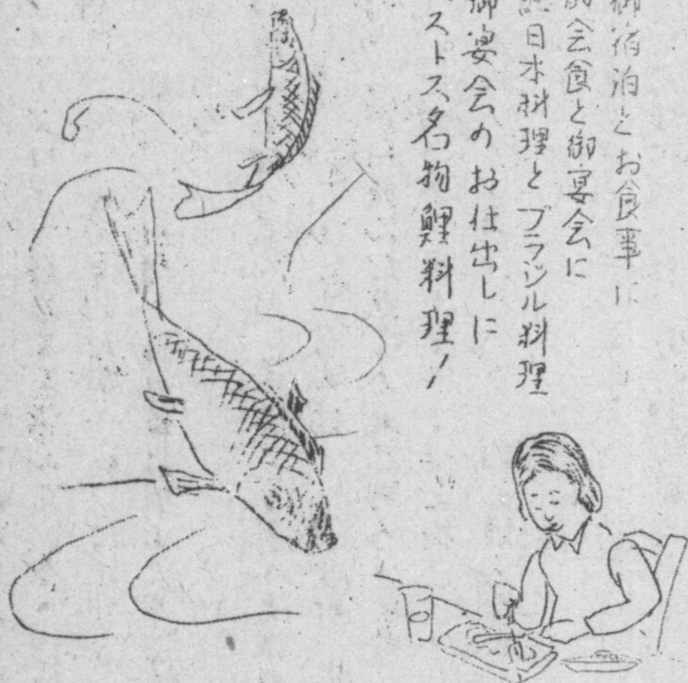 御宿泊とお食事に
会食と御宴会に
日本料理とブラジル料理
御宴会のお仕出しに
ストス名物鯉料理!